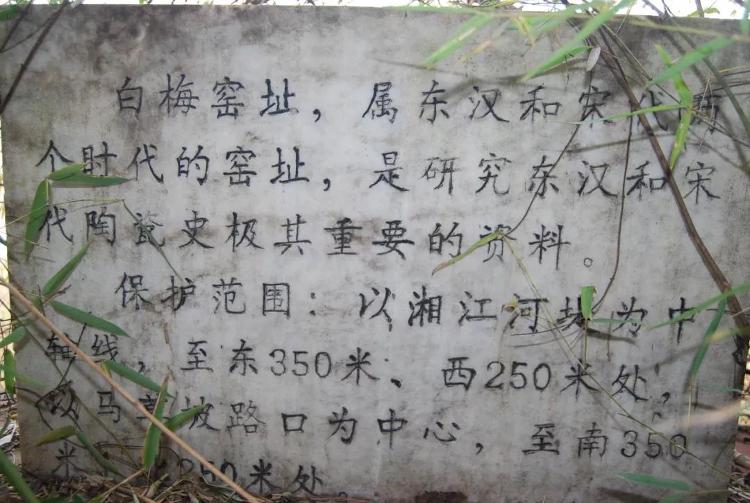 白梅窑址，属东汉和宋代两
个时代的窑址，是研究东汉和宋
代陶瓷史极其重要的资料。
保护范围：以湘江河坝为中
轴线，至东350米、西250米处，
以马 坡路口为中心，至南350
米 350米处。